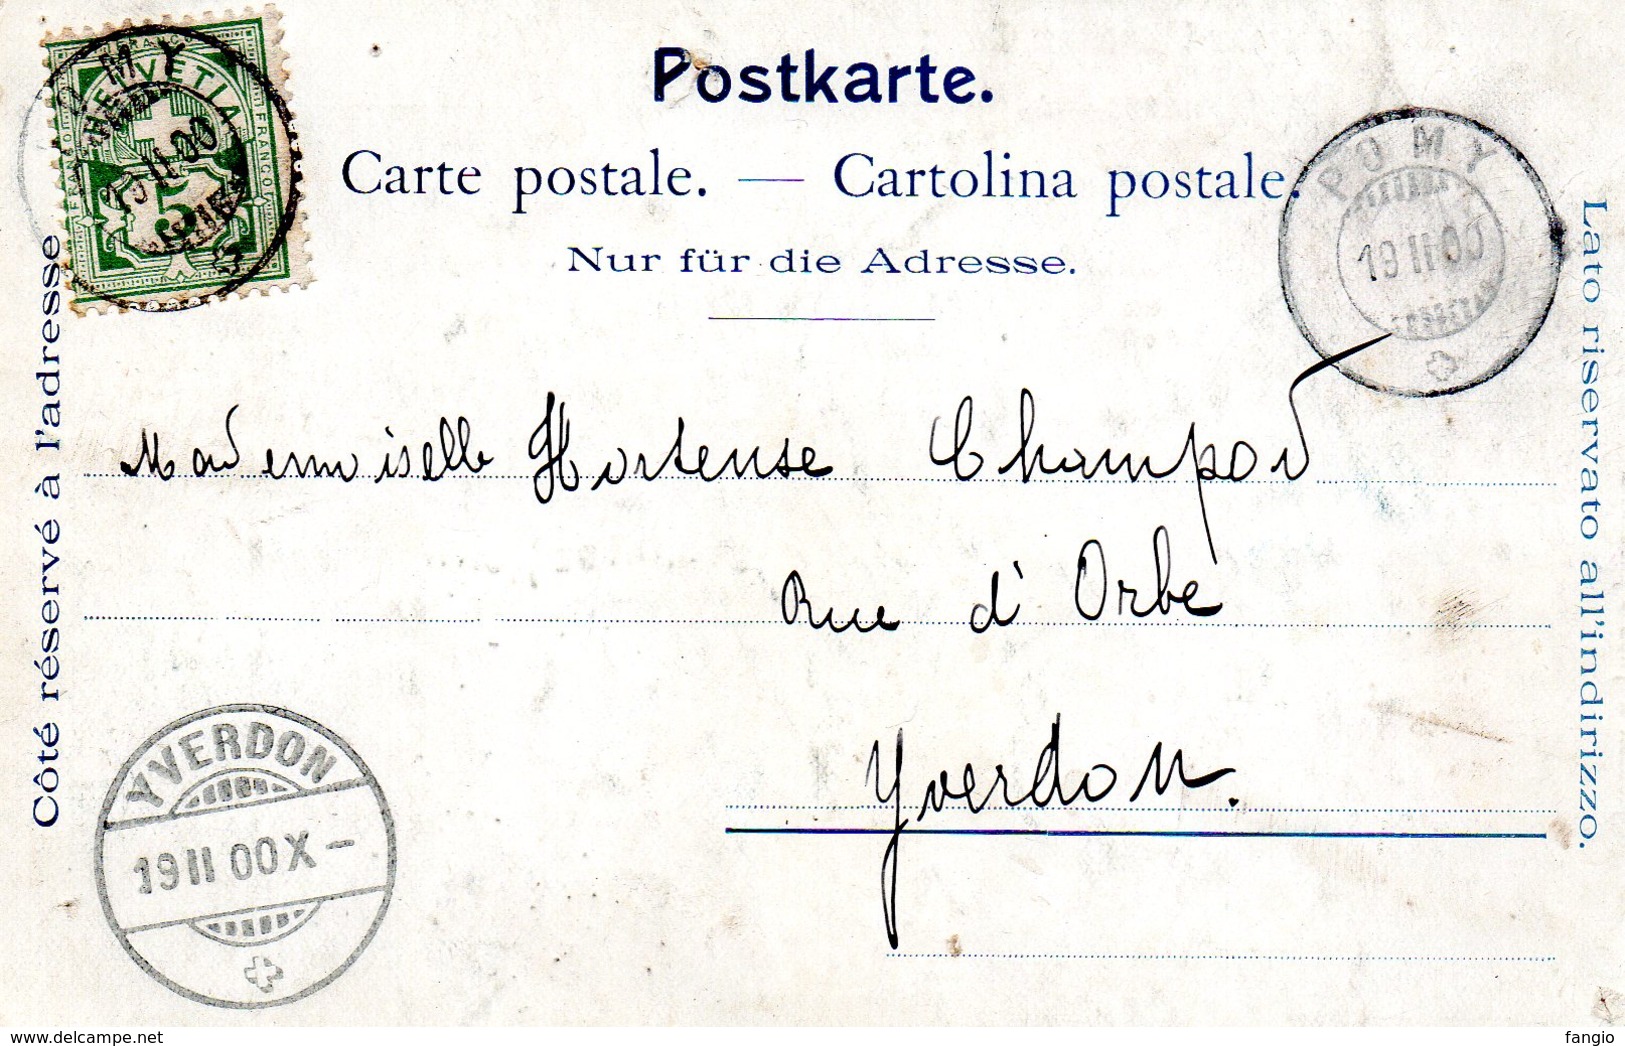 FRANCO
HELVETIA
FRANCO
5
POMY
19 II 00
Postkarte.
Carte postale. — Cartolina postale.
Nur für die Adresse.
POMY
19 II 00
Côté réservé à l'adresse
Lato riservato all'indirizzo.
Mademoiselle Hortense Champod
Rue d'Orbe
Yverdon.
YVERDON
19 II 00 X –
www.delcampe.net
fangio